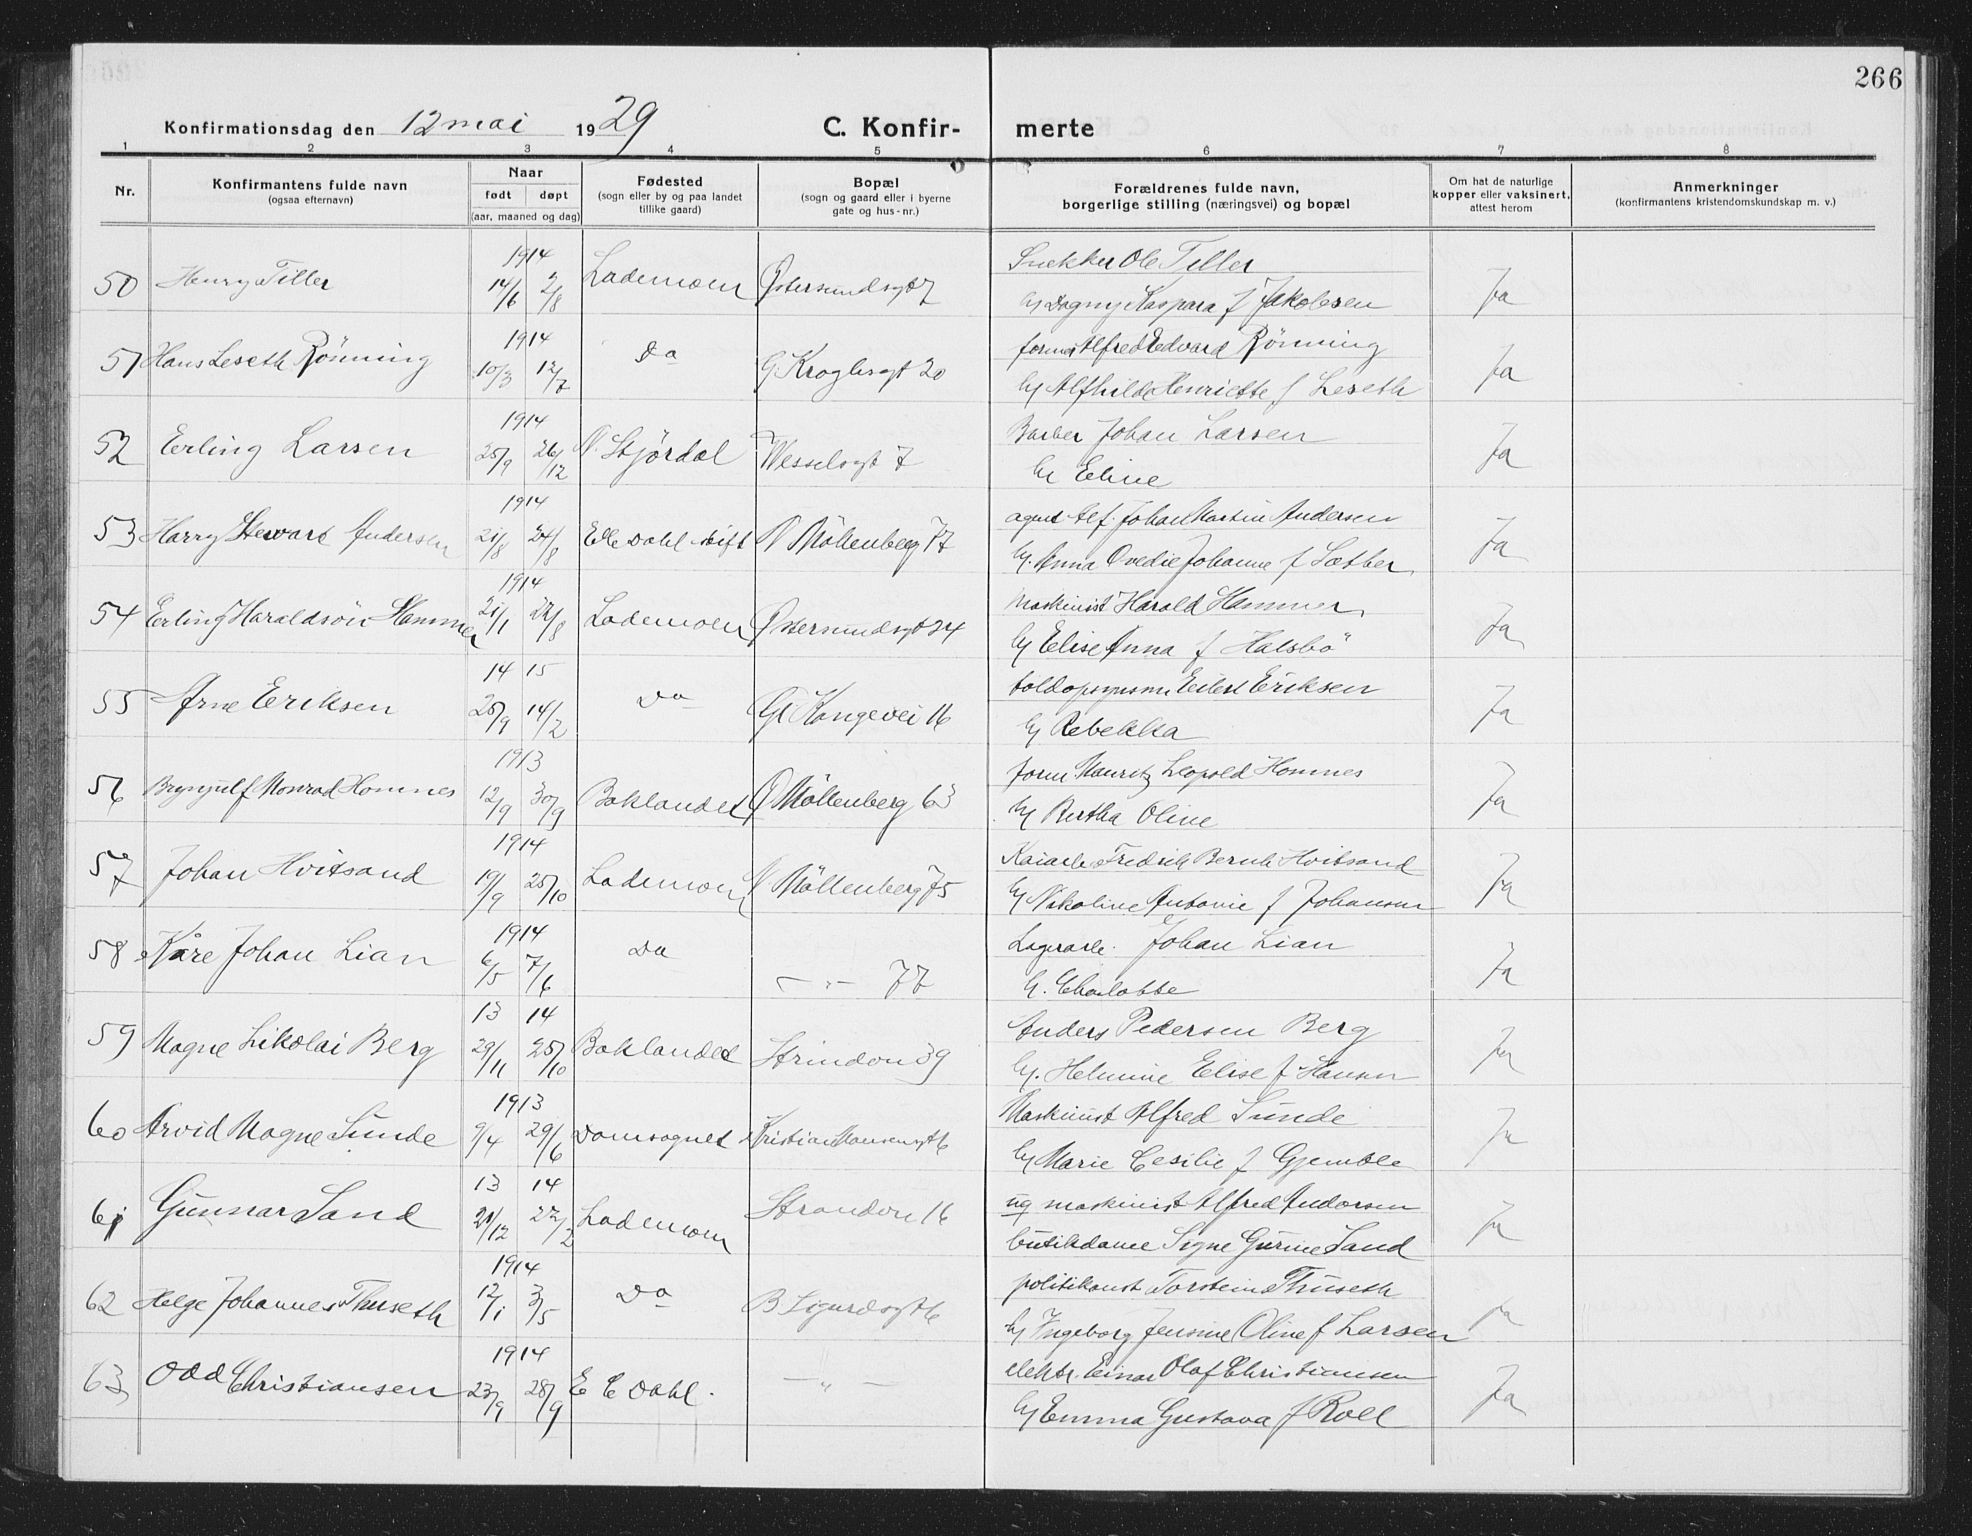 266
Konfirmationsdag den 12 mai 1929 C. Konfir- merte
1 2 3 4 5 6 7 8
Nr. Konfirmantens fulde navn (ogsaa efternavn) Naar født døpt (aar, maaned og dag) Fødested (sogn eller by og paa landet tillike gaard) Bopæl (sogn og gaard eller i byerne gate og hus-nr.) Forældrenes fulde navn, borgerlige stilling (næringsvei) og bopæl Om hat de naturlige kopper eller vaksinert, attest herom Anmerkninger (konfirmantens kristendomskundskap m. v.)
1914 Snekker Ole Tiller
50 Henry Tiller 14/6 2/8 Lademoen Østersundsgt 7 Ja
Dagny Kaspara f Jakobsen
1914 former Alfred Edvard Rönning
51 Hans Leseth Rönning 10/3 12/7 Do G. Kroghsgt 20 Ja
Alfhilde Henriette f Leseth
1914 Barber Johan Larsen
52 Erling Larsen 25/9 26/12 N. Stjördal Wesselsgt 7 Ja
Eline
1914 agent Alf. Johan Martin Andersen
53 Harry Stewart Andersen 21/8 24/8 E C Dahl stift N Möllenberg 77 Ja
Anna Ovedie Johanne f Sæther
1914 Maskinist Harald Hammer
54 Erling Haraldsön Hammer 21/1 22/8 Lademoen Østersundsgt 24 Ja
Elise Anna f Halsbö
14 15 toldopsynsm Eilert Eriksen
55 Arne Eriksen 25/9 14/2 Do Gl Kongevei 16 Ja
Rebekka
1913 form. Mauritz Leopold Hommes
56 Brynjulf Monrad Hommes 12/9 30/9 Baklandet Ø Möllenberg 63 Ja
Bertha Oline
1914 Kaiarb. Fredrik Bernh Hvitsand
57 Johan Hvitsand 19/9 25/10 Lademoen N Möllenberg 75 Ja
Nikoline Antonie f Johansen
1914 Lagerarb. Johan Lian
58 Kåre Johan Lian 6/5 7/6 Do — " — 77 Ja
Charlotte
13 14 Anders Pedersen Berg
59 Magne Nikolai Berg 29/11 25/10 Baklandet Strindvn 39 Ja
Helmine Elise f Hansen
1913 Maskinist Alfred Sunde
60 Arvid Magne Sunde 9/4 29/6 Domsognet Kristian Monsensgt 6 Ja
Marie Cesilie f Gjemble
13 14 ug maskinist Alfred Andersen
61 Gunnar Sand 21/12 22/2 Lademoen Strandvn 16 Ja
butikdame Signe Gurine Sand
1914 politikonst Torstein Thuseth
62 Helge Johannes Thuseth 12/1 3/5 Do B Sigurdsgt 6 Ja
Ingeborg Jensine Oline f Larsen
1914 elektr. Einar Olaf Christiansen
63 Odd Christiansen 23/9 28/9 E C Dahl. — " — Ja
Emma Gustava f Roll